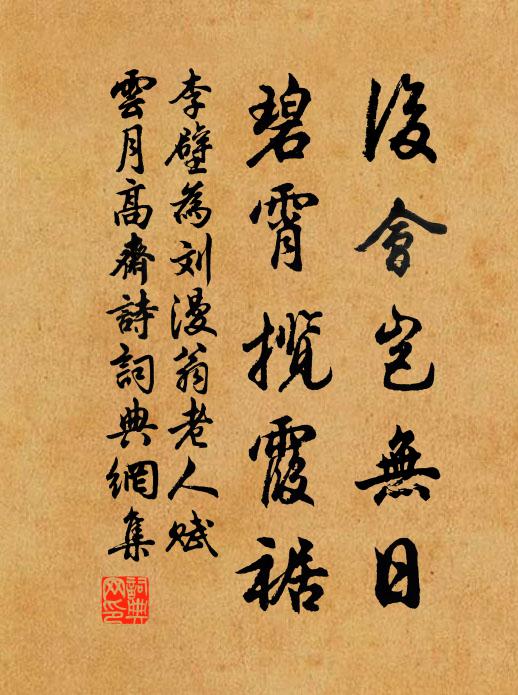 後會豈無日
碧霄攬霞裾
李壁為刘漫翁老人赋
雲月高齋詩詞典網集
詞典网印